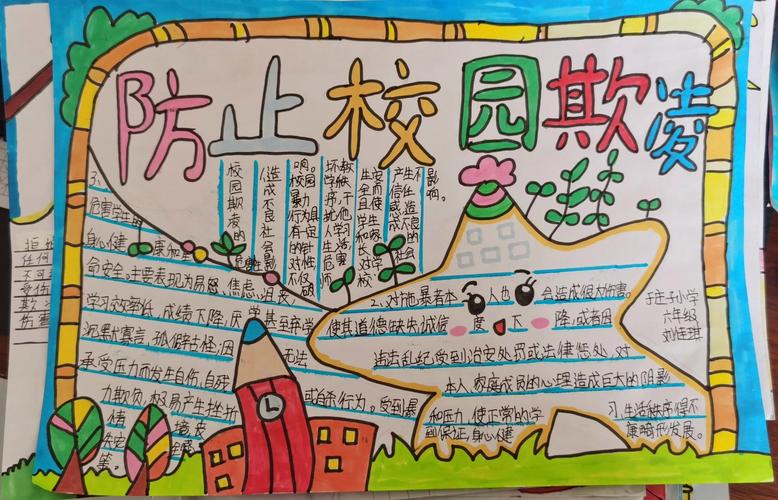 防止校园欺凌
校园欺凌的
危害性
1、造成不良社会影
响。校园暴力行为具有一定的针对性，不仅
破坏教学秩序，干扰他人学习生活，危害师
生安全，而且使学生和家长对学校
产生不信任感，造成不良的社会
影响。
2、对施暴者本人也会造成很大伤害。
使其道德缺失，诚信度下降，或者因
违法乱纪，受到治安处罚或法律惩处，对
本人、家庭成员的心理造成巨大的阴影
和压力，使正常的学习、生活秩序得不
到保证，身心健康畸形发展。
3、
危害学生的
身心健康和生
命安全。主要表现为易怒、焦虑、沮丧
学习效率低，成绩下降，厌学甚至辍学
沉默寡言，孤僻古怪；因无法
承受压力而发生自伤、自残或自杀行为。受到暴
力欺负，极易产生挫折
情境
等。
小学
六年级
刘佳琪
任何
不可
伤害